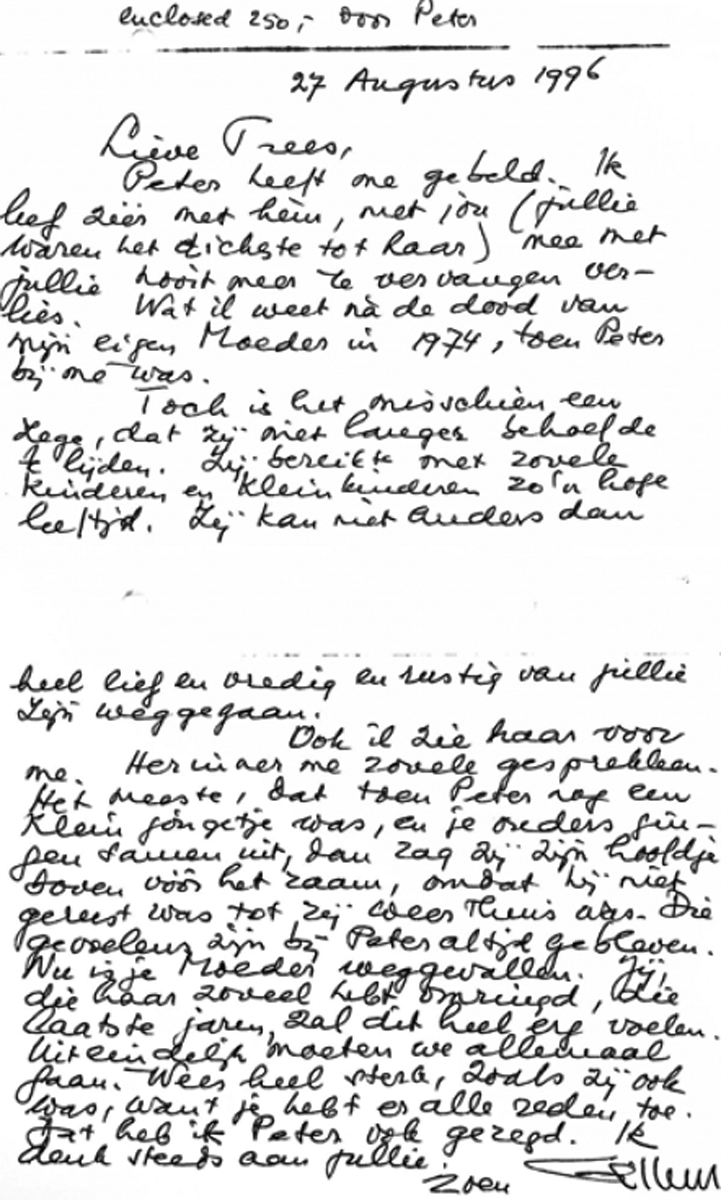 enclosed 250,- voor Peter
27 Augustus 1996
Lieve Trees,
Peter heeft me gebeld. Ik
leef zéér met hem, met jou (jullie
waren het dichtste tot haar) mee met
jullie nooit meer te vervangen ver-
lies. Wat ik weet nà de dood van
mijn eigen Moeder in 1974, toen Peter
bij me was.
Toch is het misschien een
zege, dat zij niet langer behoefde
te lijden. Zij bereikte met zovele
kinderen en kleinkinderen zo'n hoge
leeftijd. Zij kan niet anders dan
heel lief en vredig en rustig van jullie
zijn weggegaan.
Ook ik zie haar voor
me. Herinner me zovele gesprekken.
Het meeste, dat toen Peter nog een
klein jongetje was, en je ouders gin-
gen samen uit, dan zag zij zijn hoofdje
boven vóór het raam, omdat hij niet
gerust was tot zij weer thuis was. Die
gevoelens zijn bij Peter altijd gebleven.
Nu is je Moeder weggevallen. Jij,
die haar zoveel hebt omringd, die
laatste jaren, zal dit heel erg voelen.
Uiteindelijk moeten we allemaal
gaan. Wees heel sterk, zoals zij ook
was, want je hebt er alle reden toe.
Dat heb ik Peter ook gezegd. Ik
denk steeds aan jullie.
Zoen Willem